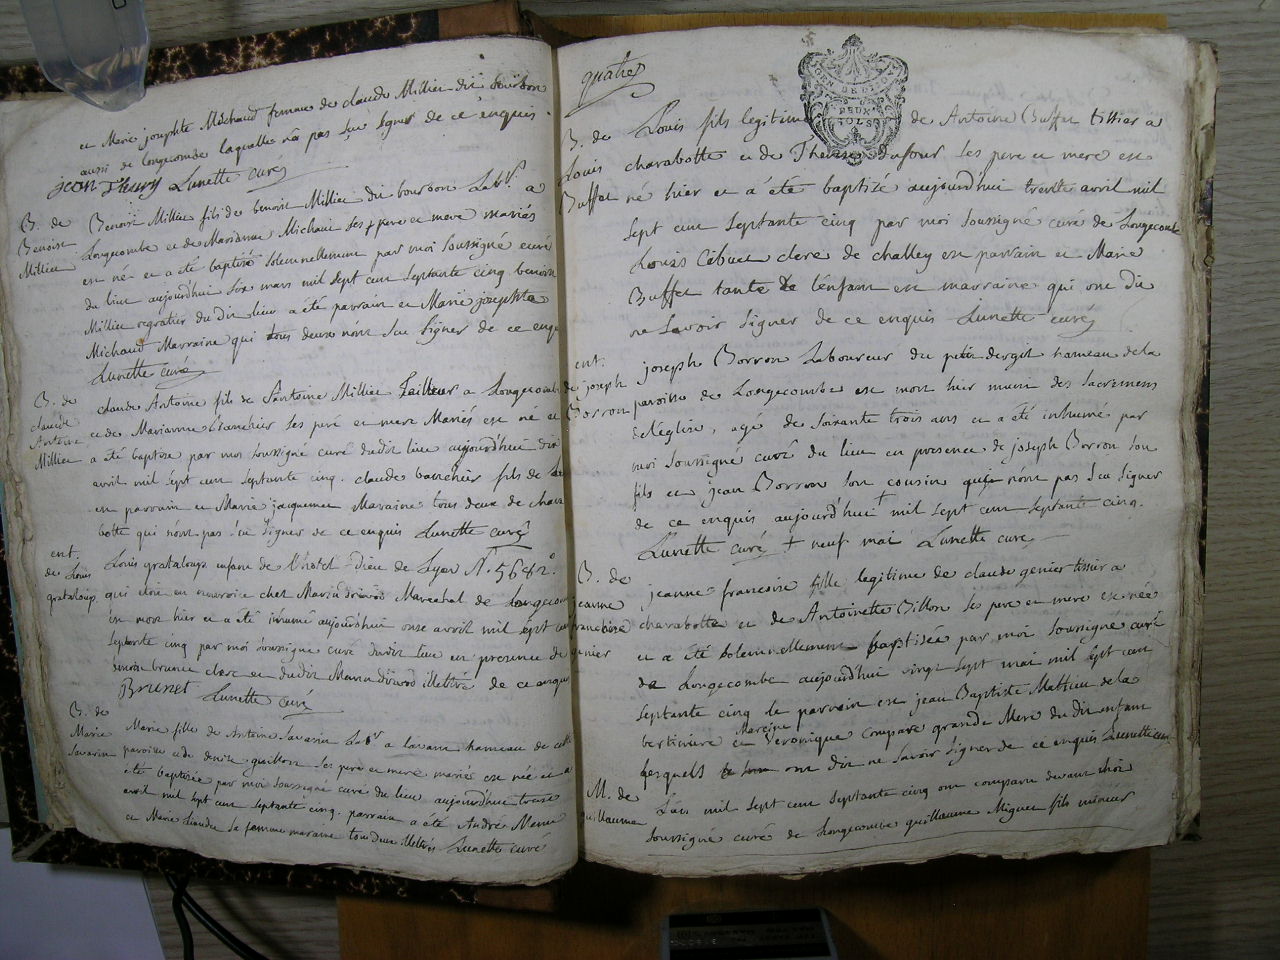 et Marie josephte Michaud femme de claude Millien dit bourbon
aussi de longecombe laquelle n'a pas sçu signer de ce enquis.
jean Thevry Lunette curé
B. de
Benoist
Millien
Benoist Millien fils de benoist Millien dit bourbon Labr. a
Longecombe et de Marianne Michaut ses pere et mere mariés
est né et a été baptisé solemnellement par moi soussigné curé
du lieu aujourd'hui six mars mil sept cent septante cinq benoist
Millien regratier du dit lieu a été parrain et Marie josephte
Michaud Marraine qui tous deux n'ont sçu signer de ce enquis
Lunette curé
B. de
claude
Antoine
Millien
claude Antoine fils de Antoine Millien Tailleur a Longecombe
et de Marianne banchier ses peré et mere Mariés est né et
a été baptisé par moi soussigné curé dudit lieu aujourd'hui dix
avril mil sept cent septante cinq. claude banchier fils de
en parrain et Marie jacquemet Maraine tous deux de chara
botte qui n'ont pas sçu signer de ce enquis Lunette curé
ent.
de Louis
grataloup
Louis grataloup enfant de l'hotel-Dieu de Lyon N. 5682.
qui étoit en nourrice chez Marin drivod Marechal de Longecombe
est mort hier et a été inhumé aujourd'hui onze avril mil sept cent
septante cinq par moi soussigné curé dudit lieu en presence de
benoist brunet clerc et du dit Marin drivod illettré de ce enquis
Brunet Lunette curé
B. de
Marie
Savarin
Marie fille de Antoine Savarin Labr a Lavant hameau de cette
paroisse et de denise guillon ses pere et mere mariés est née et a
été baptisée par moi soussigné curé du lieu aujourd'hui treize
avril mil sept cent septante cinq. parrain a été André Memin
et Marie sa femme maraine tous deux illettrés Lunette curé
quatre
GEN. DE DIJON
DEUX
SOLS
B. de
Louis
Buffet
Louis fils legitime de Antoine Buffet tissier a
charabotte et de Therese Dufour ses pere et mere est
né hier et a été baptisé aujourd'hui trente avril mil
sept cent septante cinq par moi soussigné curé de Longecombe
Louis Cebuet clerc de challey est parrain et Marie
Buffet tante de l'enfant est marraine qui ont dit
ne Savoir signer de ce enquis Lunette curé
ent.
de joseph
Borron
joseph Borron Laboureur du petit dergit hameau de la
paroisse de Longecombe est mort hier muni des sacremens
de l'église, agé de soixante trois ans et a été inhumé par
moi soussigné curé du lieu en presence de joseph Borron son
fils et jean Borron son cousin qui n'ont pas sçu signer
de ce enquis aujourd'hui + mil sept cent septante cinq.
Lunette curé + neuf mai Lunette curé
B. de
jeanne
francoise
genier
jeanne francoise fille legitime de claude genier tissier a
charabotte et de Antoinette Billon ses pere et mere est née
et a été solemnellement baptisée par moi soussigné curé
de Longecombe aujourd'huy vingt sept mai mil sept cent
septante cinq le parrain est jean Baptiste Mathieu de la
Mareine
bertiniere et Veronique Comparé grande Mere du dit enfant
Lesquels ont dit ne savoir signer de ce enquis Lunette curé
M. de
guillaume
L'an mil sept cent septante cinq ont comparu devant moi
soussigné curé de Longecombe guillaume Miguet fils mineur